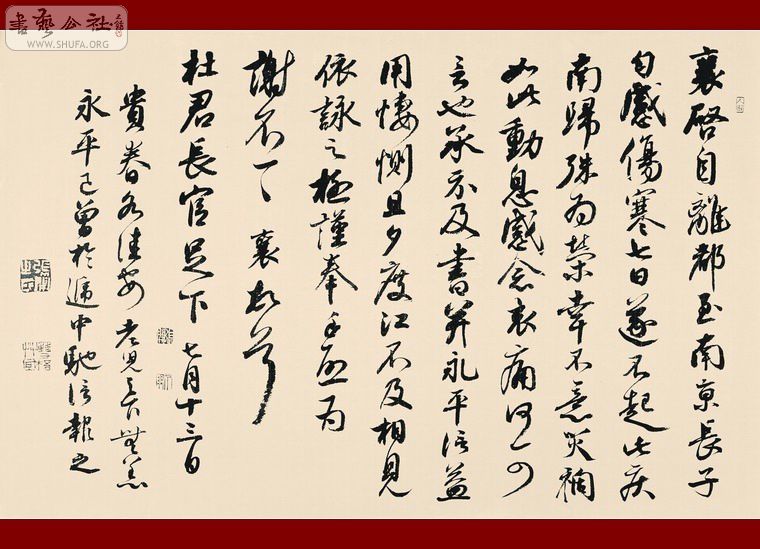 襄啓自離都至南京長子
勻感傷寒七日遂不起此疾
南歸殊為榮幸不意災禍
如此動息感念哀痛何可
言也承示及書并永平信益
用悽惻旦夕度江不及相見
依詠之極謹奉手啟為
謝不一一 襄頓首
杜君長官足下 七月十三日
貴眷各佳安老兒已下無恙
永平已曾於遞中馳信報之
書藝公社
WWW.SHUFA.ORG